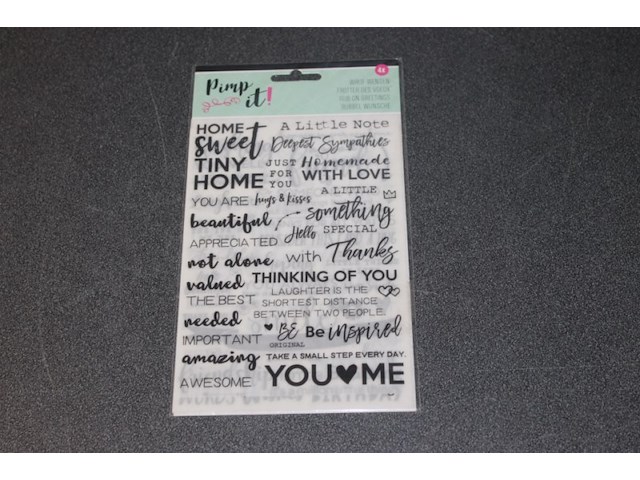 Pimp
it!
HOME
sweet
TINY
HOME
A Little Note
Deepest Sympathies
JUST
FOR
YOU
Homemade
WITH LOVE
A LITTLE
something
SPECIAL
YOU ARE
hugs & kisses
beautiful
Hello
APPRECIATED
not alone
with Thanks
valued
THINKING OF YOU
THE BEST
LAUGHTER IS THE
SHORTEST DISTANCE
BETWEEN TWO PEOPLE.
needed
BE
ORIGINAL
Be inspired
IMPORTANT
amazing
TAKE A SMALL STEP EVERY DAY.
AWESOME
YOU♥ME